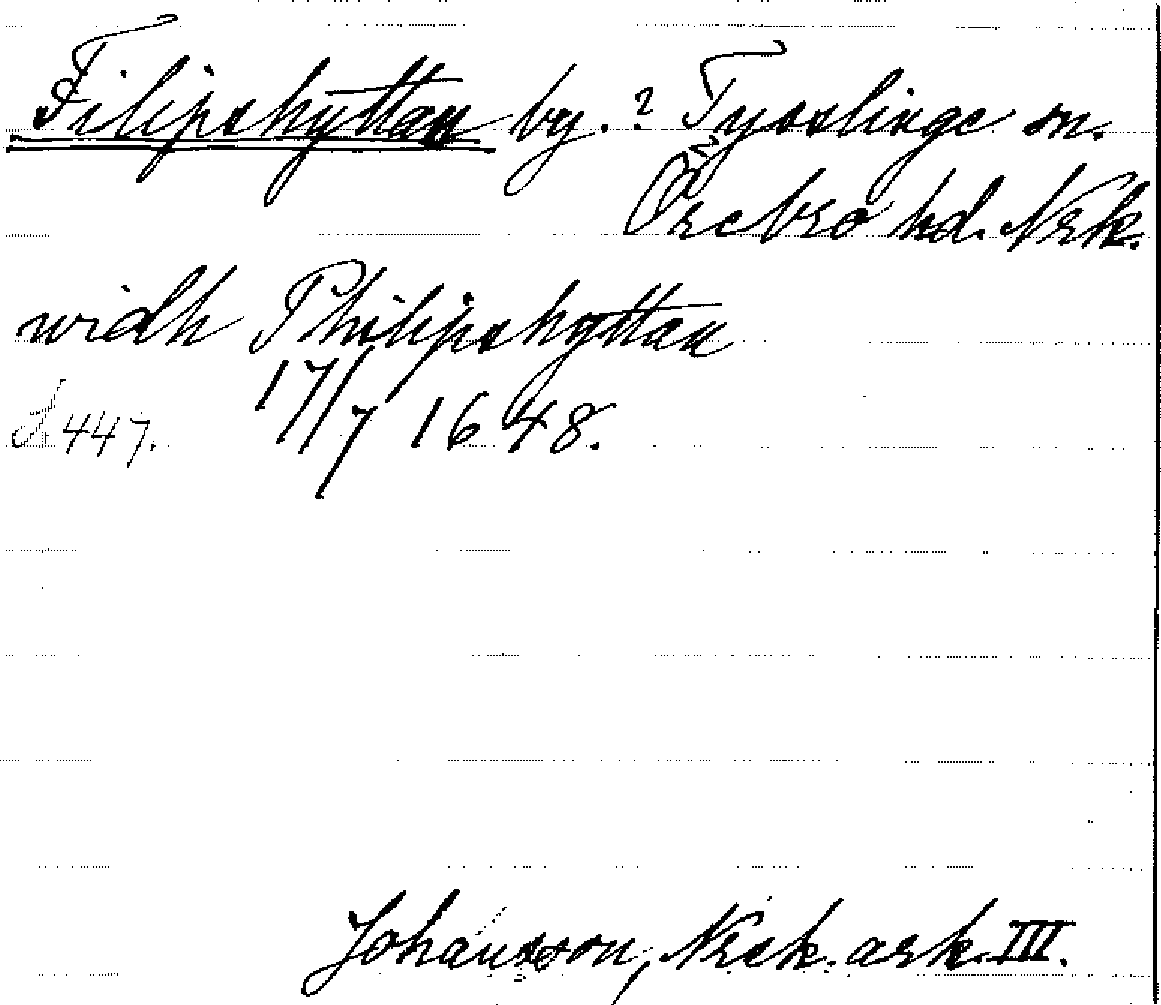 Filipshyttan by. ? Tysslinge sn.
Örebro hd. Nrk.
widh Philipshyttan
17/7 1648.
447.
Johansson, Nerk. ark. III.